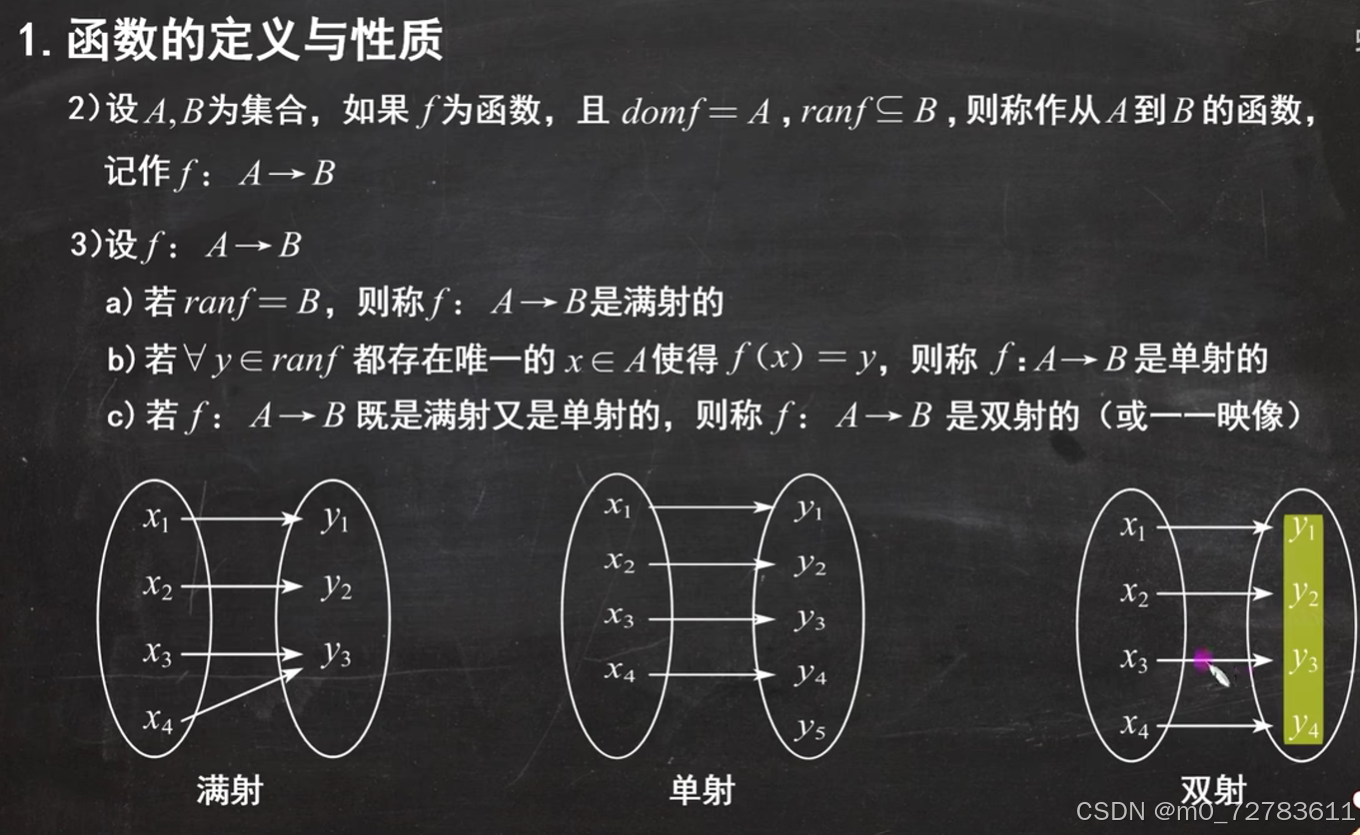 1. 函数的定义与性质
2)设A,B为集合，如果 f为函数，且 domf = A , ranf ⊆ B , 则称作从A到B的函数，
记作 f： A → B
3)设 f： A → B
a) 若 ranf = B，则称 f： A → B是满射的
b) 若∀ y ∈ ranf 都存在唯一的 x ∈ A使得 f(x) = y，则称 f : A → B 是单射的
c) 若 f： A → B 既是满射又是单射的，则称 f： A → B 是双射的（或一一映像）
x₁ y₁
x₂ y₂
x₃ y₃
x₄
满射
x₁ y₁
x₂ y₂
x₃ y₃
x₄ y₄
y₅
单射
x₁ y₁
x₂ y₂
x₃ y₃
x₄ y₄
双射
CSDN @m0_72783611